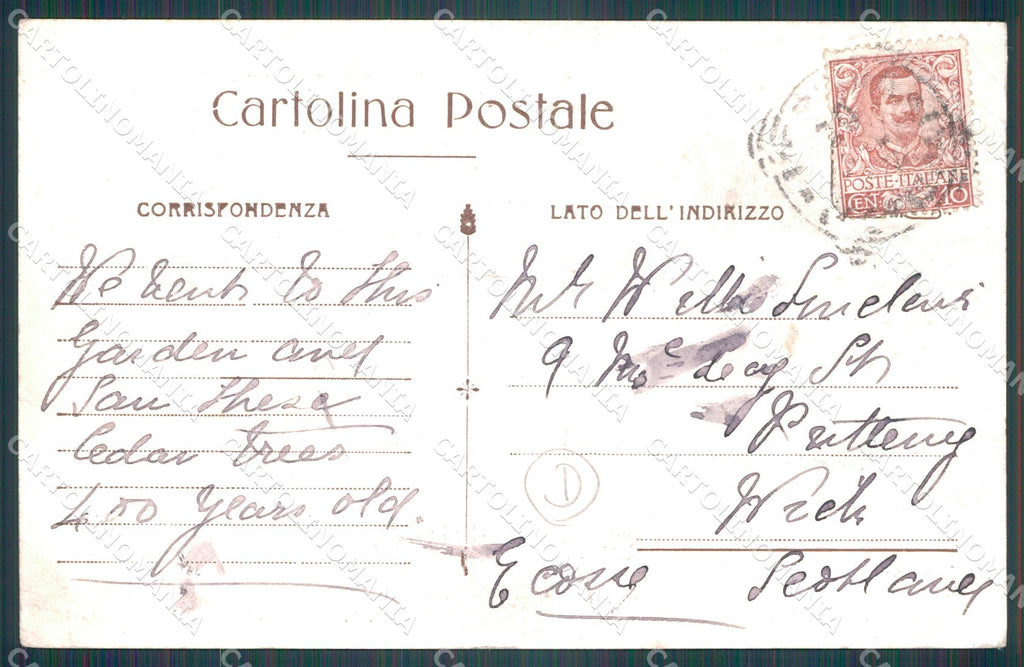 Cartolina Postale
CORRISPONDENZA
We went to this
Garden and
Saw these
Cedar trees
400 years old.
LATO DELL'INDIRIZZO
POSTE·ITALIANE
CEN. 10
Mr Willie Sinclair
9 McLeay St
Pulteney
Wick
Scotland
Ecosse
D
CARTOLINOMANIA